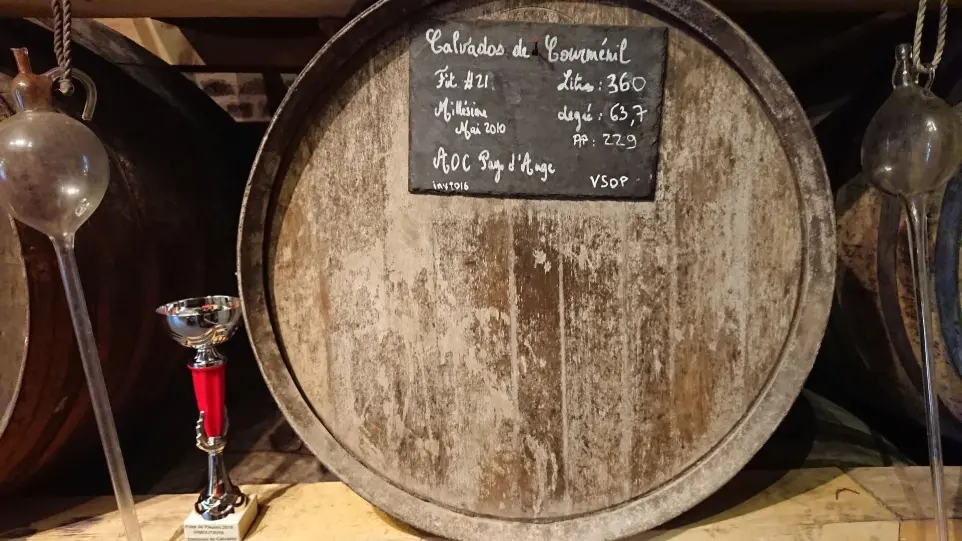 Calvados de Courménil
Fût #21 Litres : 360
Millésime degré : 63,7
Mai 2010 AP : 229
AOC Pays d'Auge
inv 2016 VSOP